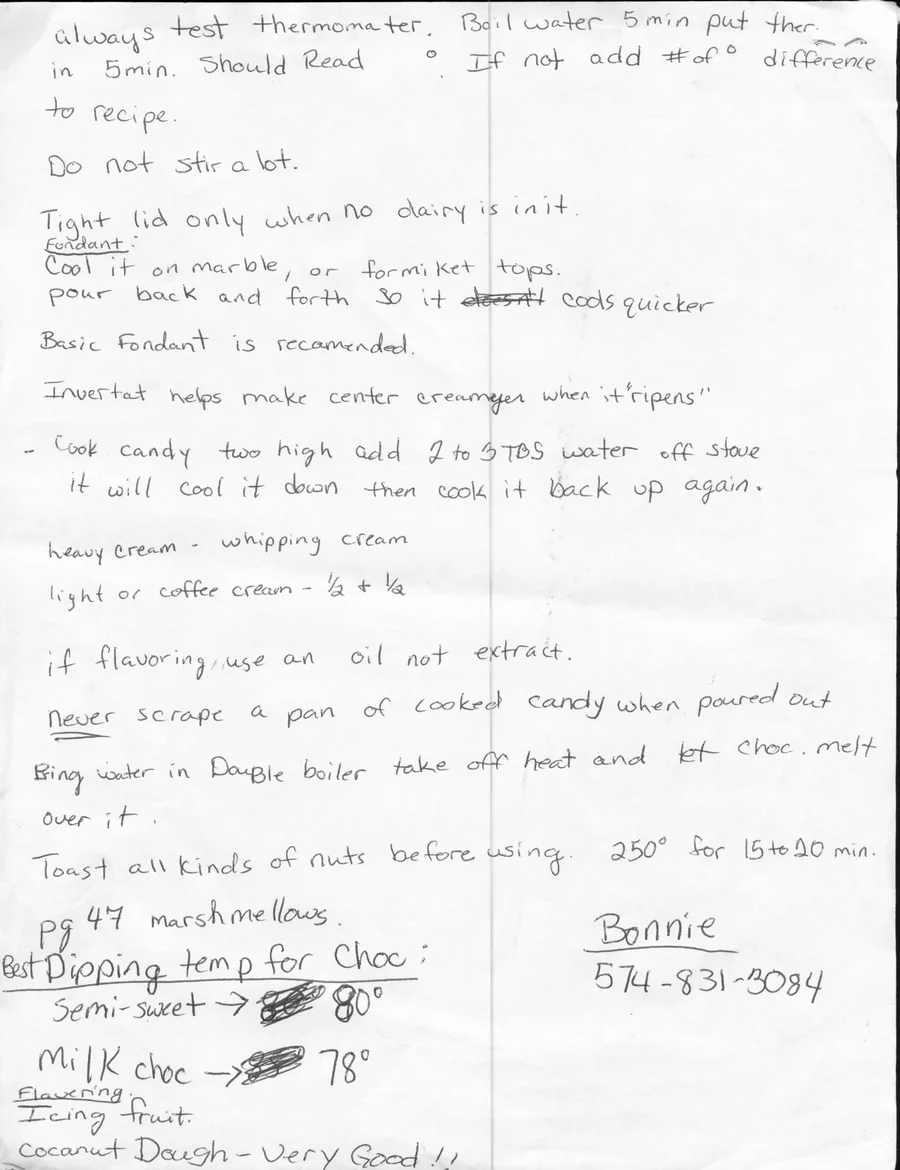 always test thermomater. Boil water 5 min put ther.
in 5min. Should Read ° . If not add # of ° difference
to recipe.
Do not stir a lot.
Tight lid only when no dairy is in it.
Fondant:
Cool it on marble, or formiket tops.
pour back and forth so it doesn't cools quicker
Basic Fondant is recamended.
Invertat helps make center creamyer when it "ripens"
- Cook candy two high add 2 to 3 TBS water off stove
it will cool it down then cook it back up again.
heavy cream - whipping cream
light or coffee cream - 1/2 + 1/2
if flavoring, use an oil not extract.
never scrape a pan of cooked candy when poured out
Bing water in Double boiler take off heat and let choc. melt
over it.
Toast all kinds of nuts before using. 250° for 15 to 20 min.
pg 47 marshmellows.
Bonnie
574-831-3084
Best Dipping temp for Choc:
Semi-sweet → 80°
Milk choc → 78°
Flavering:
Icing fruit.
Coconut Dough - Very Good!!